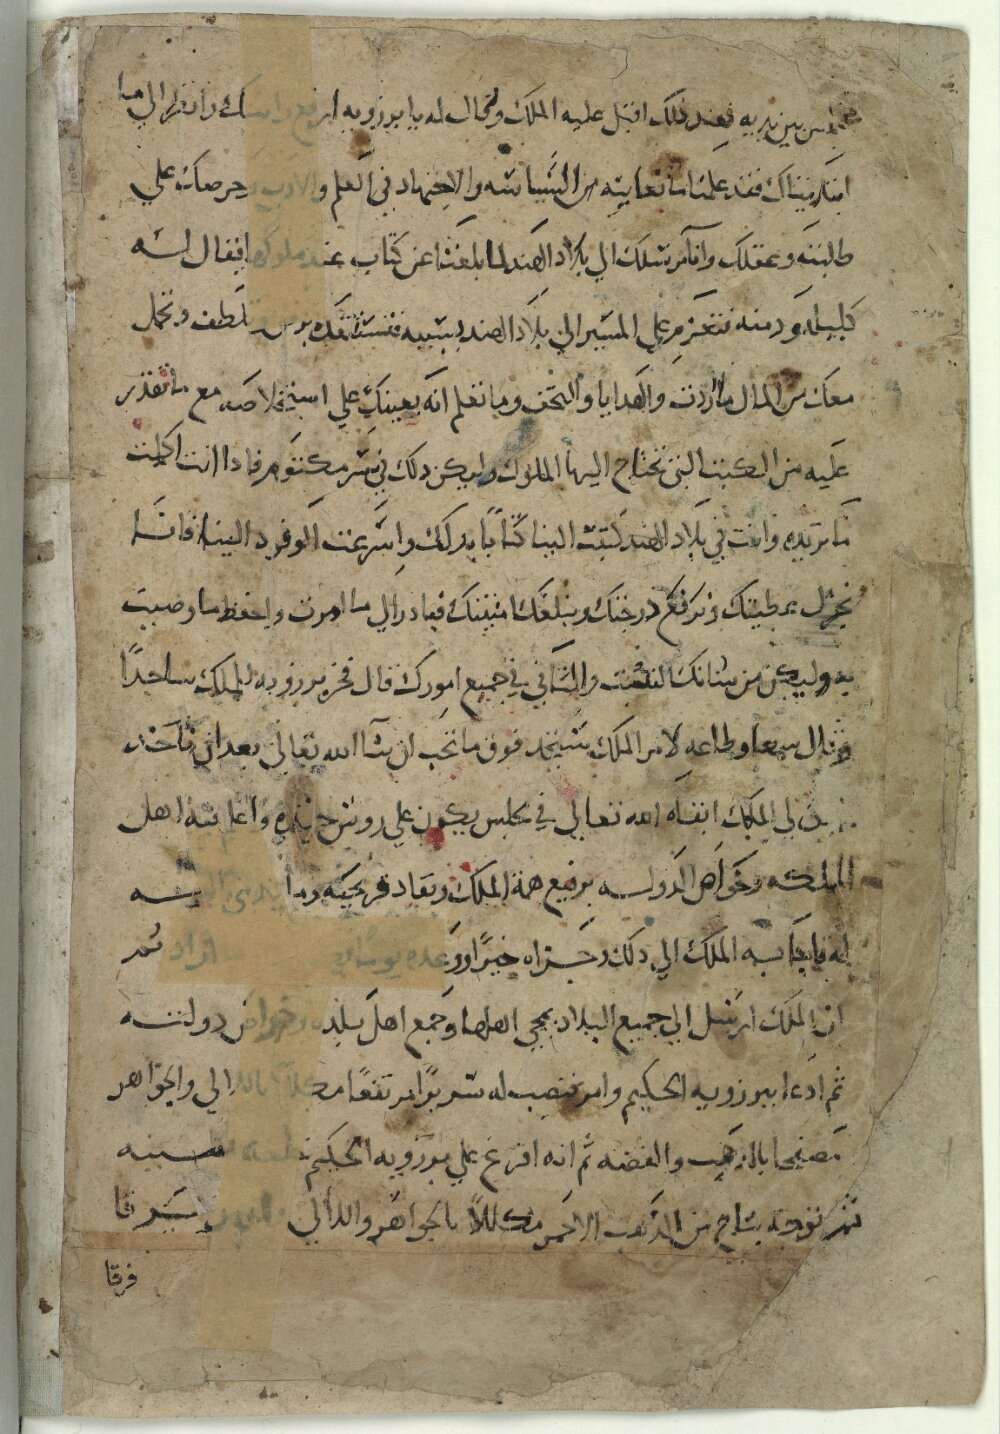 بين يديه فعند ذلك اقبل عليه الملك وقال له يا برزويه ارفع راسك وانظر الي ما
ابتدیناك فقد علمنا ما تعانيه من السياسه والاجتهاد في العلم والادب وحرصك علي
طلبته وعقلك وانا مرسلك الي بلاد الهند لما بلغنا عن كتاب عند ملوكها يقال له
كليله ودمنه فتعزم علي المسير الي بلاد الهند بسببه تلطف وتحمل
معك من المال ما اردت والهدايا والتحف وما تعلم انه يعينك علي استخلاصه مع ما تقدر
عليه من الكتب التي تحتاج اليها الملوك وليكن ذلك في سر مكتوم فاذا انت اكملت
ما تريده وانت في بلاد الهند كتبت الينا كتابا بذلك واسرعت الوفود الينا فاننا
نجزل عطيتك ونرفع درجتك ونبلغك امنيتك فبادر الي ما امرت واحفظ ما وصيت
به وليكن من شانك التثبت والتاني في جميع امورك قال فخر برزويه للملك ساجدا
وقال سمعا وطاعه لامر الملك ستجد فوق ما تحب ان شا الله تعالي بعد ان تاخذ
لي الملك ابقاه الله تعالي في مجلس يكون علي روس جنده واعانته اهل
المملكه وخواص الدوله برفيع همة الملك
له فاجابه الملك الي ذلك وجزاه خيرا ووعده ما اراد ثم
ان الملك ارسل الي جميع البلاد بمجي اهلها وجمع اهل بلده وخواص دولته
ثم ادعا ببرزويه الحكيم وامر فنصب له سريرا مرتفعا مكللا باللالي والجواهر
مصفحا بالذهب والفضه ثم انه افرغ علي برزويه الحكيم خلعه سنيه
ثم توجه بتاج من الذهب الاحمر مكللا بالجواهر واللالي
فرقا